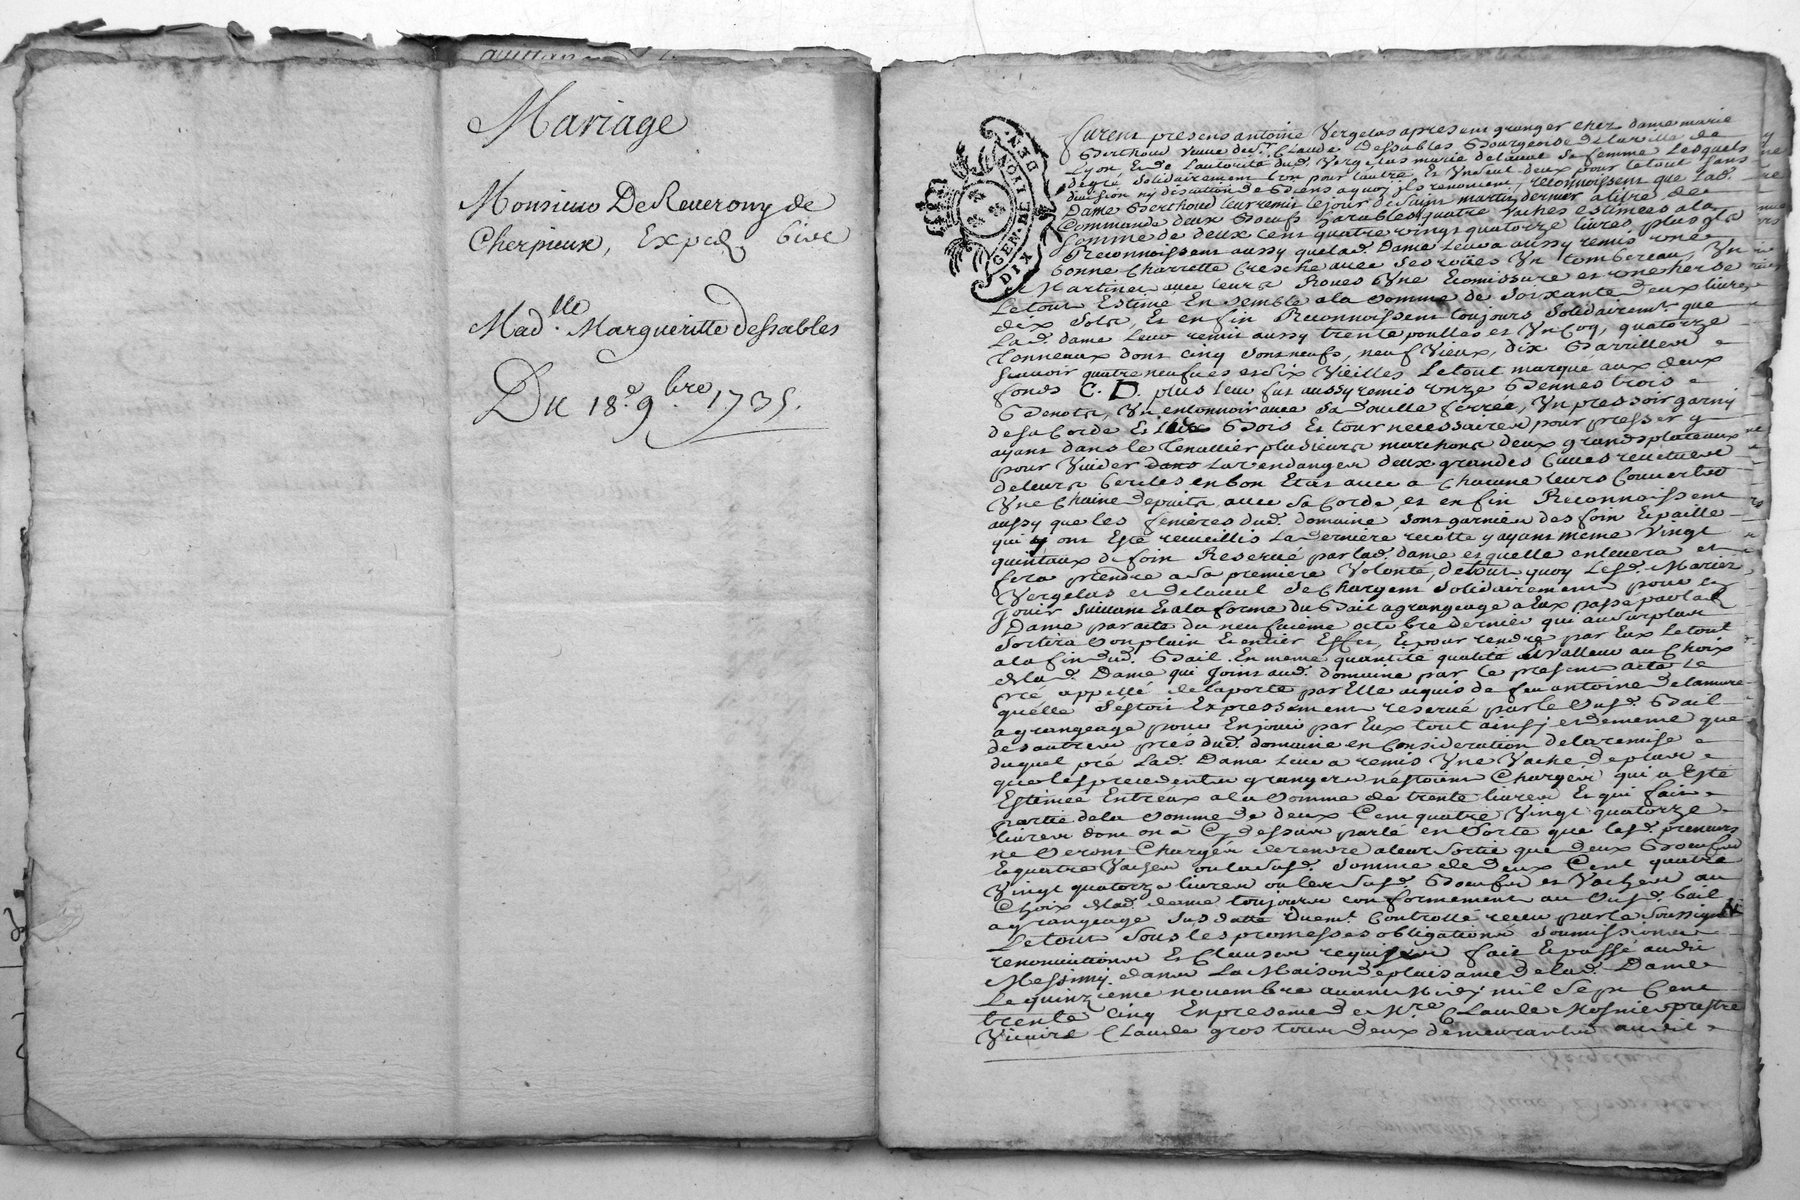 quittance
Mariage
Monsieur De Reverony de
Cherpieux, Exped.
Mad.lle Margueritte dessables
Du 18.e 9.bre 1735.
GEN. DE LYON
DIX DEN.
Furent presens antoine Vergelas apresent granger chez dame marie
Berthoud veuve de s.r Claude Dessables Bourgeois de la ville de
Lyon, et de l'autorité dud. Vergelas marie delaval sa femme Lesquels
degré solidairement l'un pour l'autre, et un seul deux pour le tout sans
division ny discution de Biens aquoy ils renoncent, reconnoissent que lad.
Dame Berthoud leur remit le jour de saint martin dernier a titre de
Commande deux Boeufs arables, quatre vaches estimées a la
somme de deux cent quatre vingt quatorze livres, plus
Reconnoissent aussy que lad. Dame leur a aussy remis une
bonne Charrette avec ses roües un tombereau, un
Martinet avec leurs Roues une et une herse
Le tout Estimé Ensemble a la somme de soixante deux livres
dix sols, Et enfin Reconnoissent toujours solidairem.t que
La d. dame leur remit aussy trente poulles et un Coq, quatorze
Tonneaux dont cinq sont neufs, neuf vieux, dix Barrilles
scavoir quatre neufves et six vieilles Le tout marqué aux deux
fonds C. D. plus leur fut aussy remis onze Bennes trois
Benots, un entonnoir avec sa douille ferrée, un pressoir garny
de sa Corde Et Bois Et tour necessaires pour presser y
ayant dans le Tenallier plusieurs marchons deux grands plateaux
pour vuider dans La vendange deux grandes Cuves
de leurs Cercles en bon Etat avec a Chacune leurs Couvertes
Une Chaine de puits avec sa Corde, et enfin Reconnoissent
aussy que les fenières dud. domaine sont garnies des foin Et paille
qui y ont Esté recueillis La derniere recolte y ayant meme vingt
quintaux de foin Reservé par lad. dame et quelle enlevera et
fera prendre a sa premiere volonté, de tout quoy Lesd. Mariez
Vergelas et delaval se Chargent solidairement pour en
Jouir suivant Et a la forme du Bail a grangeage a Eux passé par lad.
Dame par acte du neufvieme octobre dernier qui au surplus
sortira son plain Et entier Effet, Et pour rendre par Eux Le tout
a la fin dud. Bail. En meme quantité qualité Et valleur au Choix
de lad. Dame qui Joint aud. domaine par le present acte Le
pré appellé de laporte par Elle acquis de feu antoine Delamure
quelle sestoit Expressement reservé par le susd. Bail
a grangeage pour En jouir par Eux tout ainsy et de meme que
des autres prés dud. domaine en Consideration de la remise
duquel pré Lad. Dame leur a remis Une vache de plus
que les precedents grangers n'estoient Chargés qui a Esté
Estimée Entreux a la somme de trente livres Et qui fait
partie de la somme de deux Cent quatre vingt quatorze
livres dont on a Cy dessus parlé en sorte que lesd. preneurs
ne seront Chargés de rendre a leur sortie que deux Boeufs
Et quatre vaches ou la susd. somme de deux Cent quatre
vingt quatorze livres ou les susd. Boeufs et vaches au
Choix de lad. dame toujours conformement au susd. bail
a grangeage susdatté duem.t Controllé receu par le soussigné
Le tout sous les promesses obligations soumissions
renonciations Et Clauses requises fait Et passé audit
Messimy dans La Maison de plaisance de lad. Dame
Le quinzieme novembre avant Midy mil sept Cent
trente cinq En presence de M.re Claude Mosnier prestre
Vicaire Claude gros tous deux demeurants audit